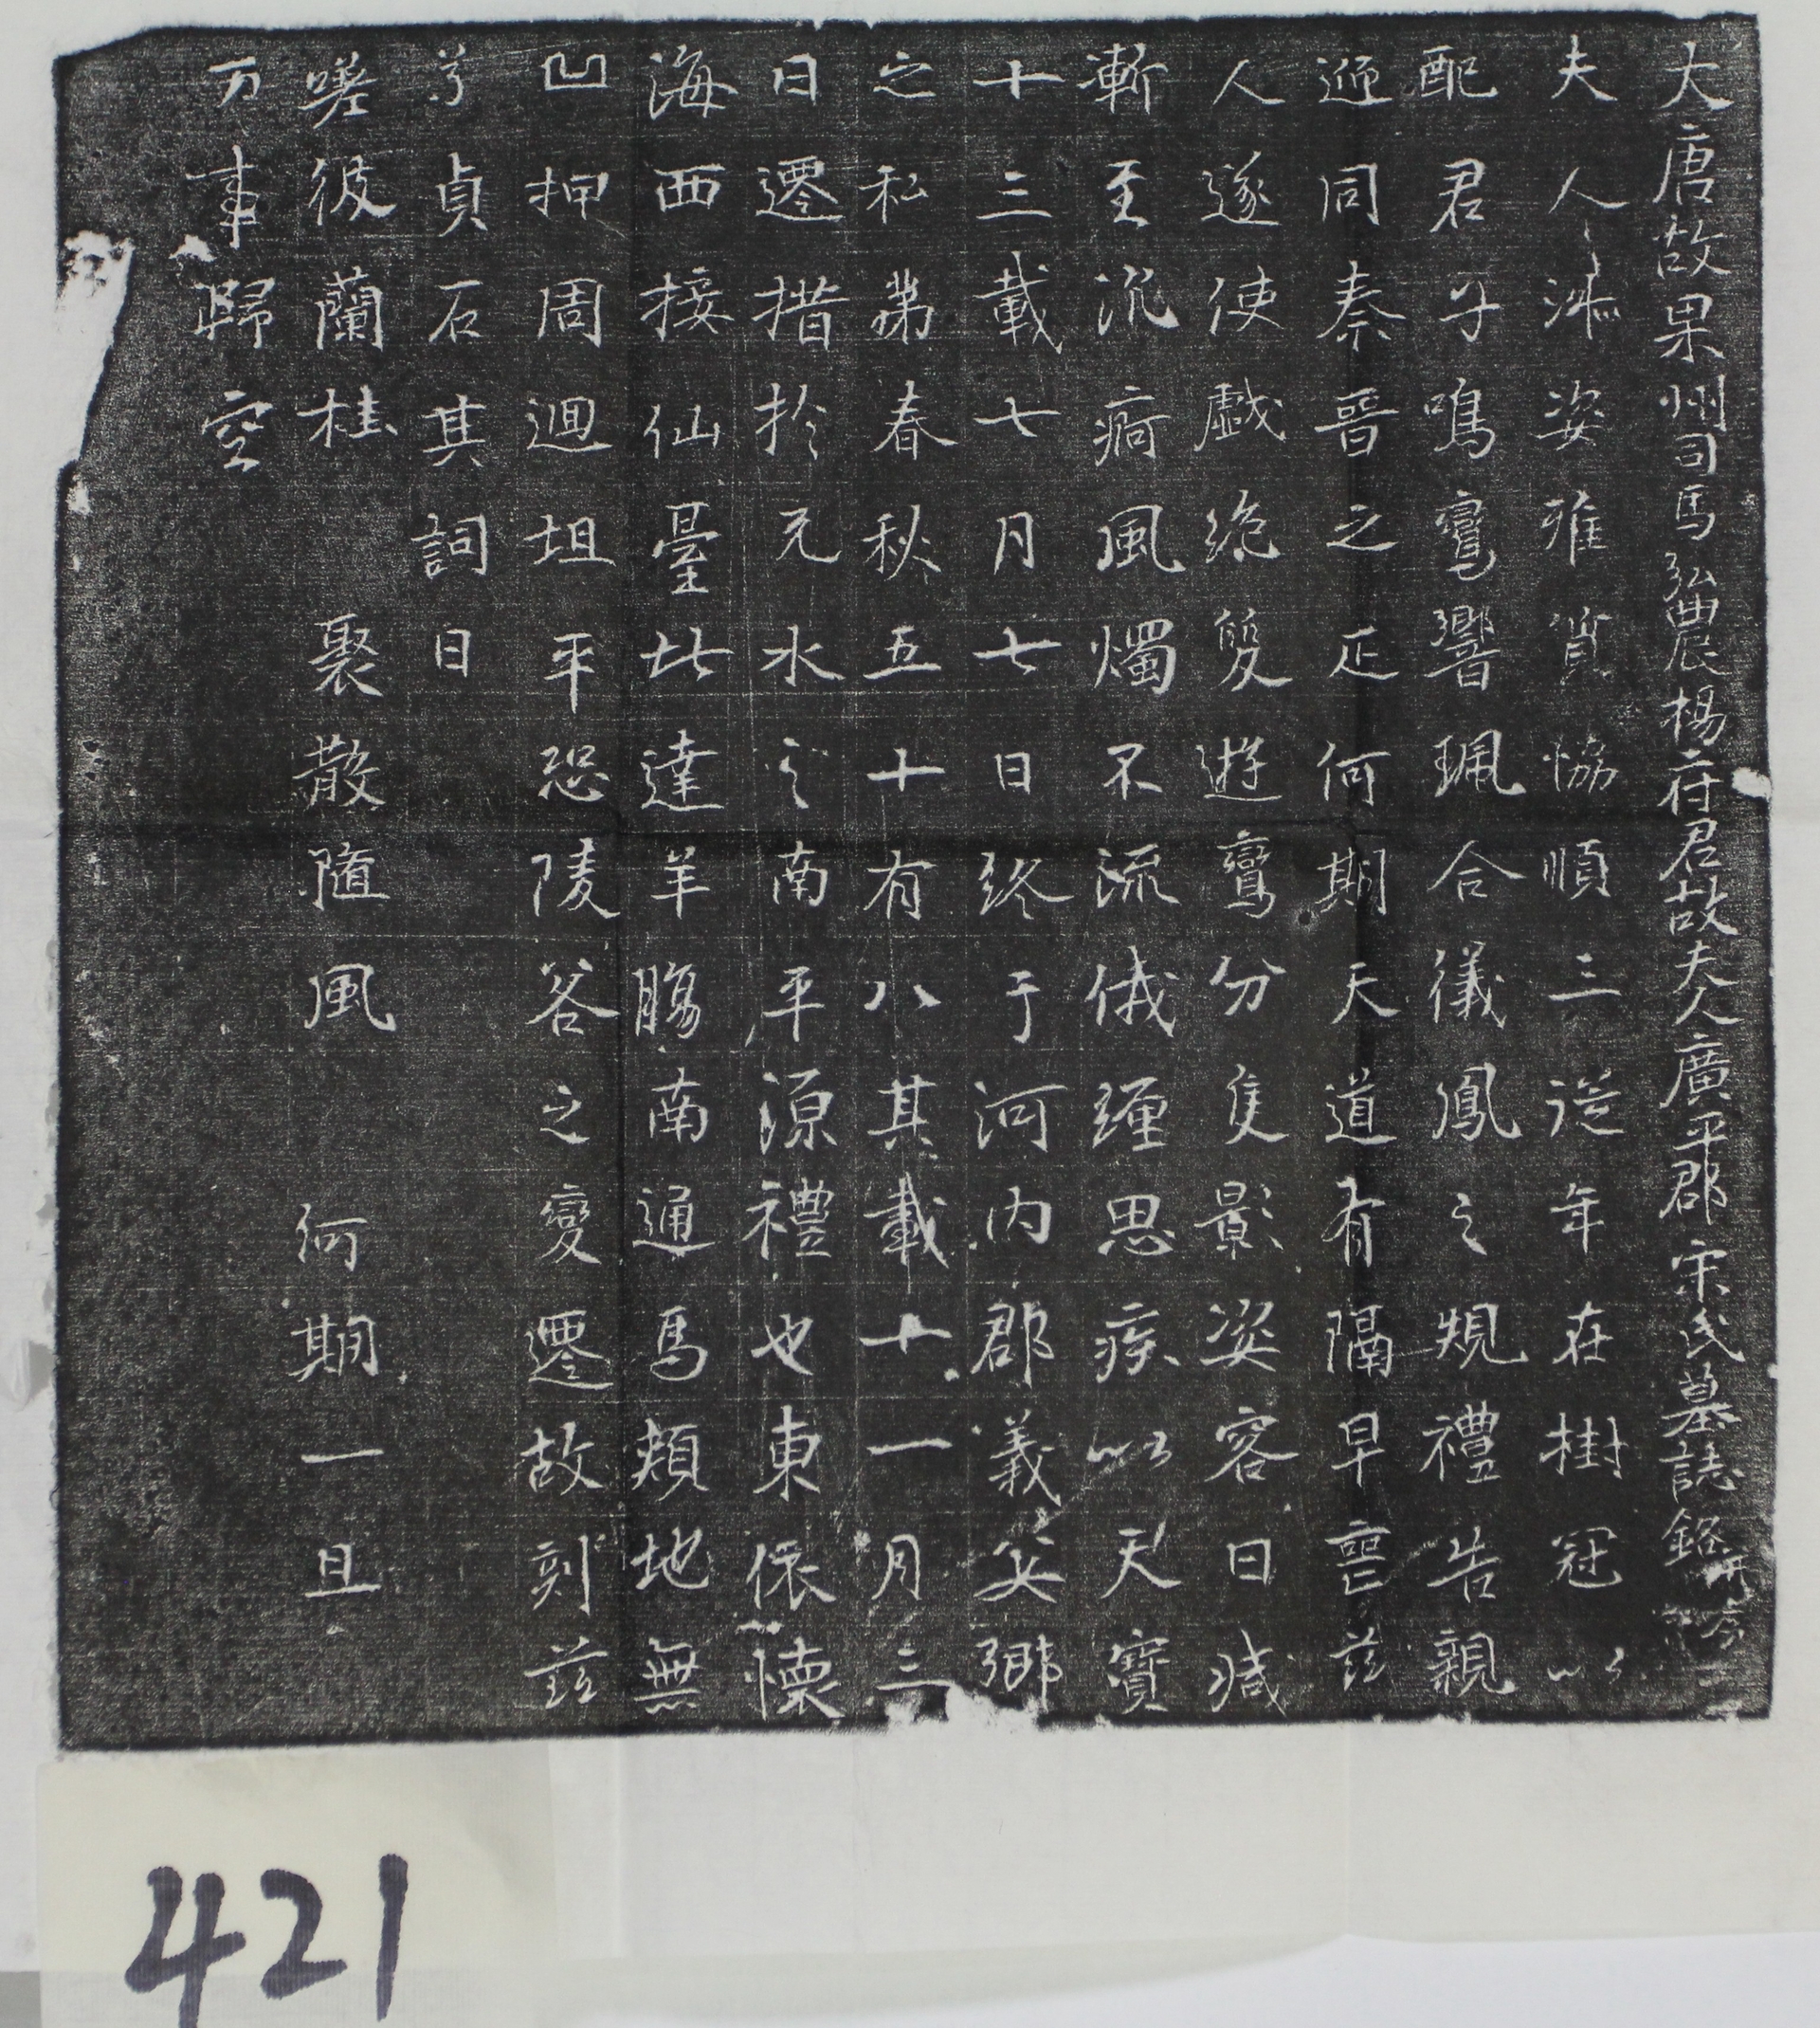 大唐故果州司馬弘農楊府君故夫人廣平郡宋氏墓誌銘并序
夫人淋姿雅質恊順三從年在樹冠以
配君子鳴鸞響珮合儀鳳之䂓禮告親
迎同秦晉之疋何期天道有隔早喪茲
人遂使戲絶雙遊鸞分隻影姿容日減
漸至沉痾風燭不流俄纏思疾以天寶
十三載七月七日終于河內郡義安鄉
之私第春秋五十有八其載十一月三
日遷措於元水之南平源禮也東依懷
海西接仙臺北達羊腸南通馬頰地無
凹押周迴坦平恐陵谷之變遷故刻茲
貞石其詞曰
嗟彼蘭桂 聚散隨風 何期一旦
万事歸空
421